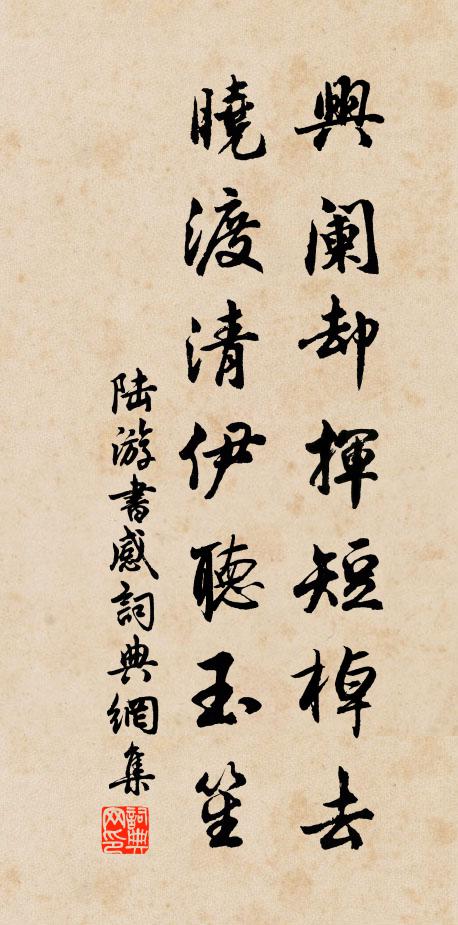 興阑却揮短棹去
曉渡清伊聽玉笙
陆游書感詞典網集
詞典
网印